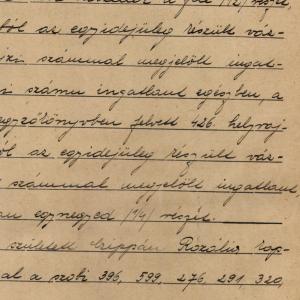 ből az egyidejüleg készült váz-
számmal megjelölt ingat-
i számu ingatlant egészben, a
egyzőkönyvben felvett 426. helyraj-
ól az egyidejüleg készült váz-
számmal megjelölt ingatlant,
an egynegyed /1/4/ részét.
született Czippán Rozália kap-
al a szobi 396, 599, 276, 291, 320,